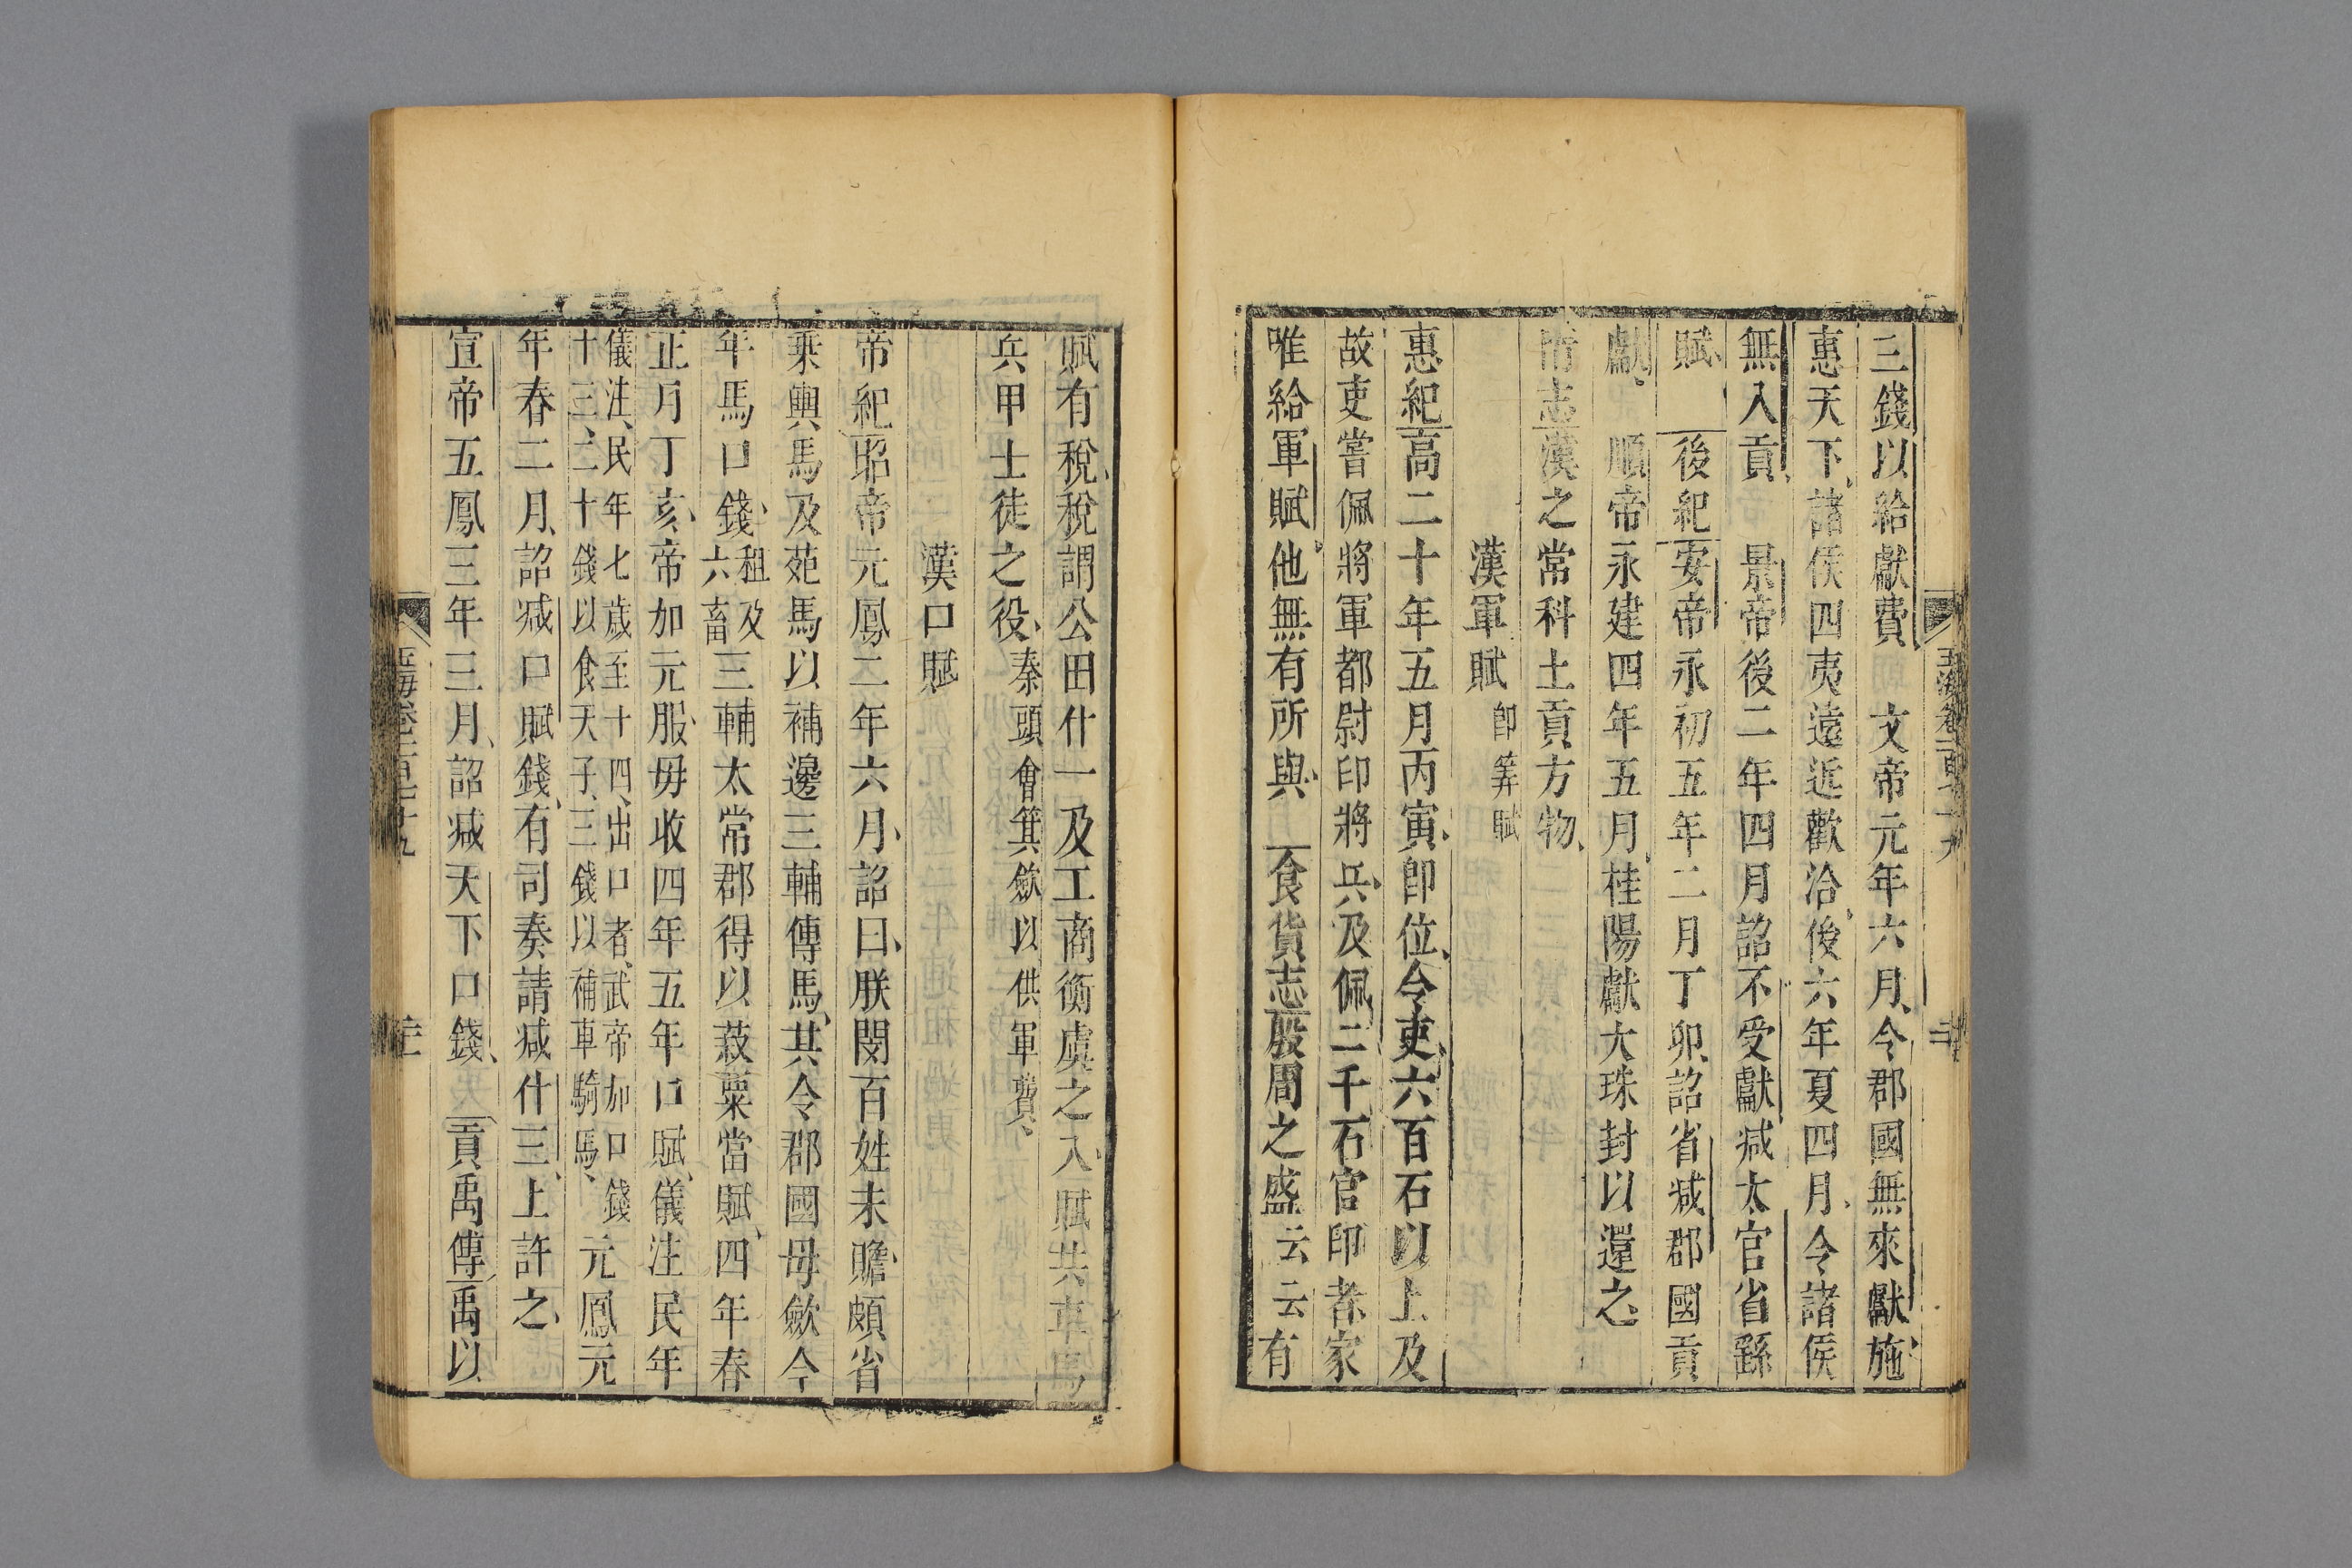 三錢以給獻費 文帝元年六月令郡國無來獻施
惠天下諸侯四夷遠近歡洽後六年夏四月令諸侯
無入貢 景帝後二年四月詔不受獻減太官省繇
賦 後紀安帝永初五年二月丁卯詔省減郡國貢
獻 順帝永建四年五月桂陽獻大珠封以還之
隋志漢之常科土貢方物
漢軍賦 卽筭賦
惠紀高二十年五月丙寅卽位令吏六百石以上及
故吏嘗佩將軍都尉印將兵及佩二千石官印者家
唯給軍賦他無有所與 食貨志殷周之盛云云有
賦有稅稅謂公田什一及工商衡虞之入賦共車馬
兵甲士徒之役秦頭會箕斂以供軍費
漢口賦
帝紀昭帝元鳳二年六月詔曰朕閔百姓未贍頗省
乘輿馬及苑馬以補邊三輔傳馬其令郡國毋斂今
年馬口錢租及六畜三輔太常郡得以菽粟當賦四年春
正月丁亥帝加元服毋收四年五年口賦儀注民年
儀注民年七歲至十四出口者武帝加口錢
十三二十錢以食天子三錢以補車騎馬元鳳元
年春二月詔減口賦錢有司奏請減什三上許之
宣帝五鳳三年三月詔減天下口錢 貢禹傳禹以